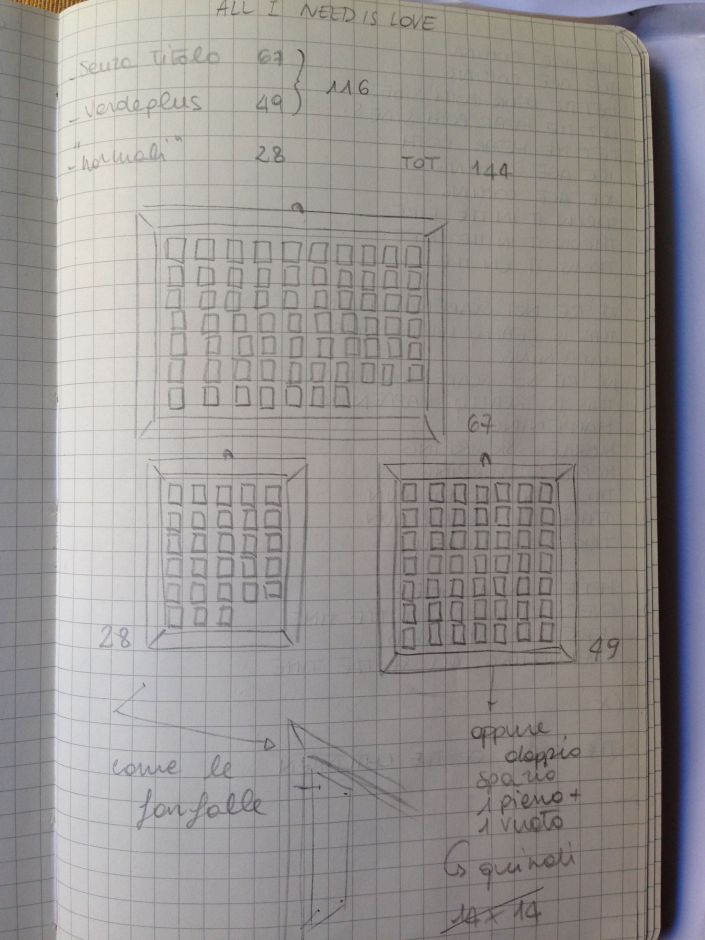 ALL I NEED IS LOVE
- Senza Titolo 67
116
- Verdeplus 49
- "normali" 28 TOT 144
67
28
49
come le
farfalle
oppure
doppio
spazio
1 pieno +
1 vuoto
quindi
14 x 14